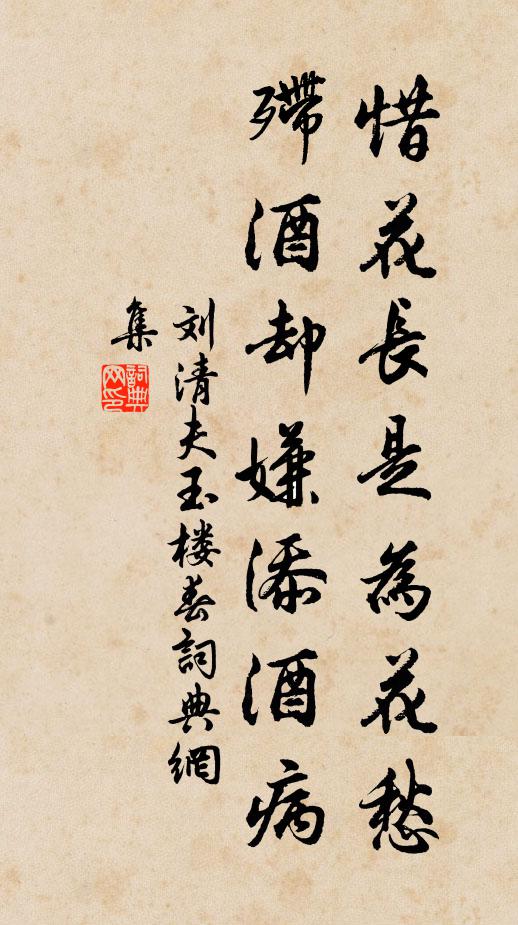 惜花長是為花愁
殢酒却嫌添酒病
刘清夫玉楼春詞典網
集
詞典网印